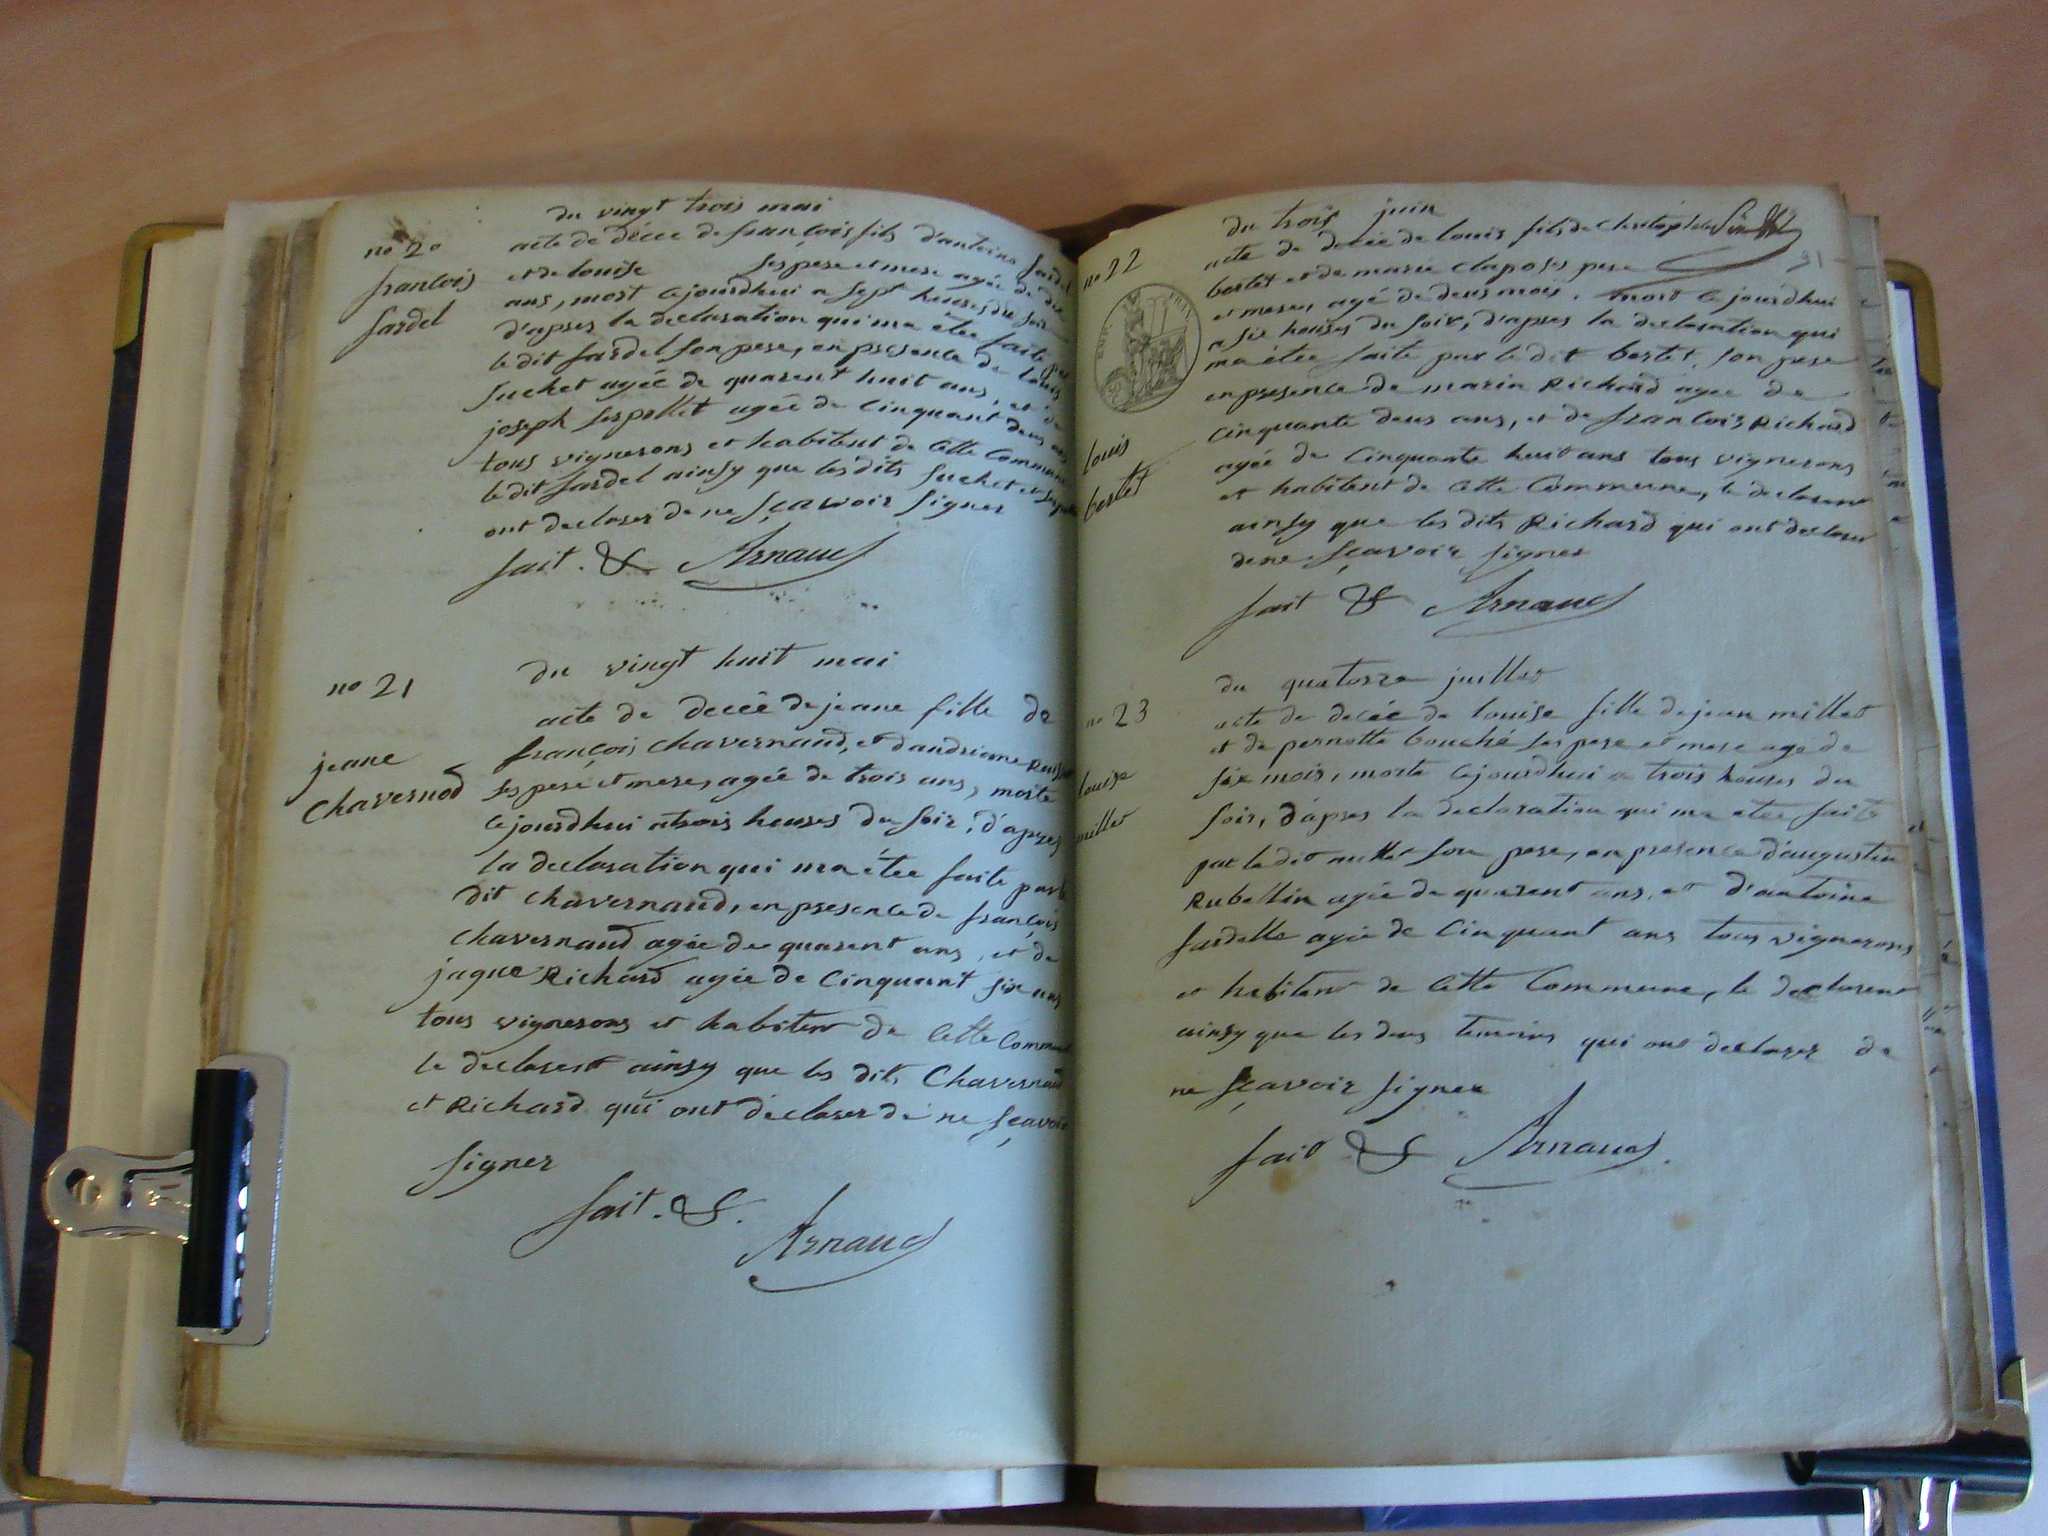 du vingt trois mai
no 20
acte de décee de françois fils d'antoine sardel
françois
sardel
et de louise ses pere et mere agée de
ans, mort cejourdhui a sept heures du soir
d'apres la declaration qui ma étee faite par
le dit sardel son pere, en presence de louis
suchet agée de quarent huit ans, et de
joseph agée de cinquant deus ans
tous vignerons et habitent de cette commune
le dit sardel ainsy que les dits suchet et
ont declarer de ne sçavoir signer
fait. & Arnaud
no 21
du vingt huit mai
jeane
chavernod
acte de decée de jeane fille de
françois chavernaud, et dandrieme
ses pere et mere, agée de trois ans, morte
cejourdhui a trois heures du soir, d'apres
la declaration qui ma étee faite par le
dit chavernaud, en presence de françois
chavernaud agée de quarent ans, et de
jaque Richard agée de cinquant six ans
tous vignerons et habitent de cette commune
le declarent ainsy que les dits Chavernaud
et Richard qui ont déclarer de ne sçavoir
signer
fait. &. Arnaud
du trois juin
31
no 22
acte de decée de louis fils de christophe
bertet et de marie claposes pere
et mere, agé de deus mois. mort cejourdhui
a six heures du soir, d'apres la declaration qui
ma étee faite par le dit bertet, son pere
en presence de marin Richard agee de
cinquante deus ans, et de francois Richard
louis
bertet
agée de cinquante huit ans tous vignerons
et habitent de cette commune, le declarent
ainsy que les dits Richard qui ont declarer
de ne sçavoir signer
fait & Arnaud
du quatorze juillet
no 23
louise
millet
acte de decée de louise fille de jean millet
et de pernette bouché ses pere et mere age de
six mois, morte cejourdhui a trois heures du
soir, d'apres la declaration qui ma etee faite
par le dit millet son pere, en presence d'augustin
Rubellin agée de quarent ans, et d'antoine
sardelle agée de cinquant ans tous vignerons
et habitent de cette Commune, le declarent
ainsy que les deus temoins qui ont declarer de
ne sçavoir signer
fait & Arnaud.